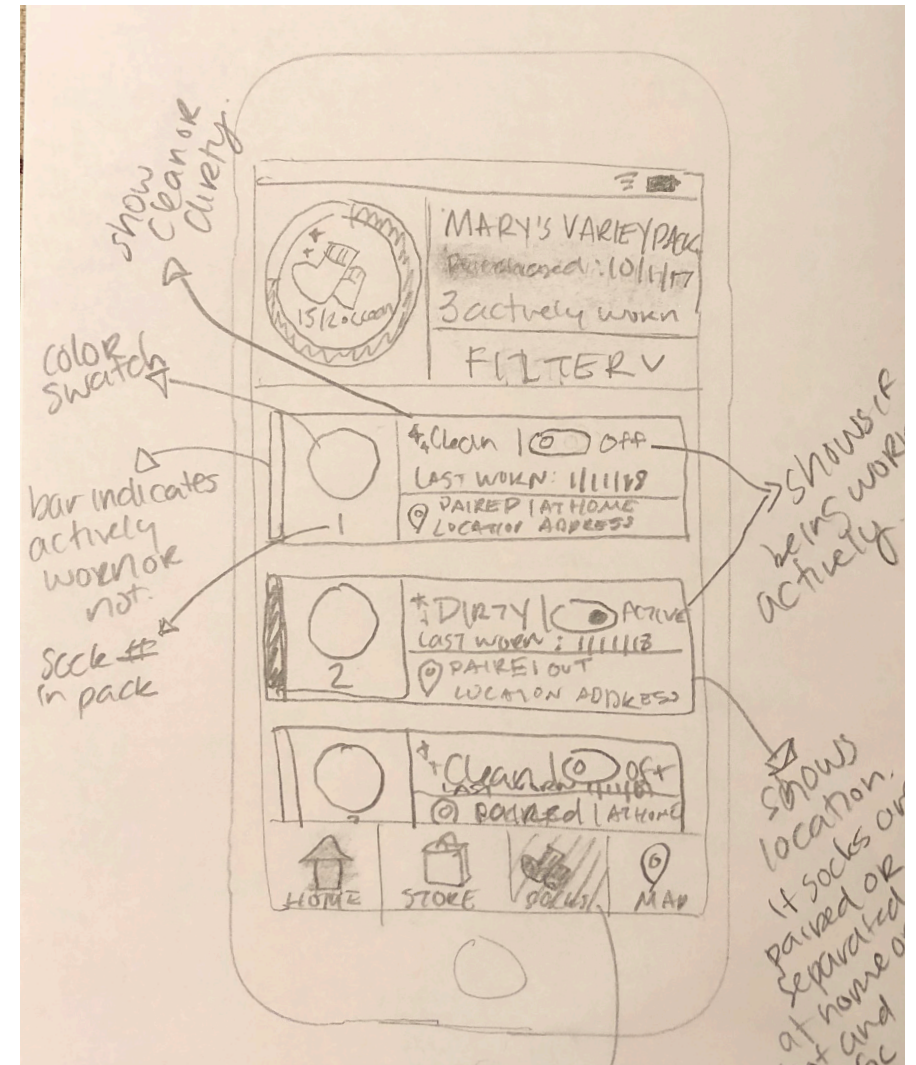 show
clean or
dirty.
color
swatch
bar indicates
actively
worn or
not.
Sock #
in pack
MARY'S VARIEYPACK
Purchased : 10/1/17
3 actively worn
FILTER V
Clean | OFF
LAST WORN: 1/11/18
PAIRED | AT HOME
LOCATION ADDRESS
1
DIRTY | ACTIVE
LAST WORN : 1/11/18
PAIRE | OUT
LOCATION ADDRESS
2
Clean | OFF
LAST
Paired | AT HOME
HOME
STORE
SOCKS
MAP
shows if
being worn
actively
shows
location.
If socks are
paired or
separated
at home or
and